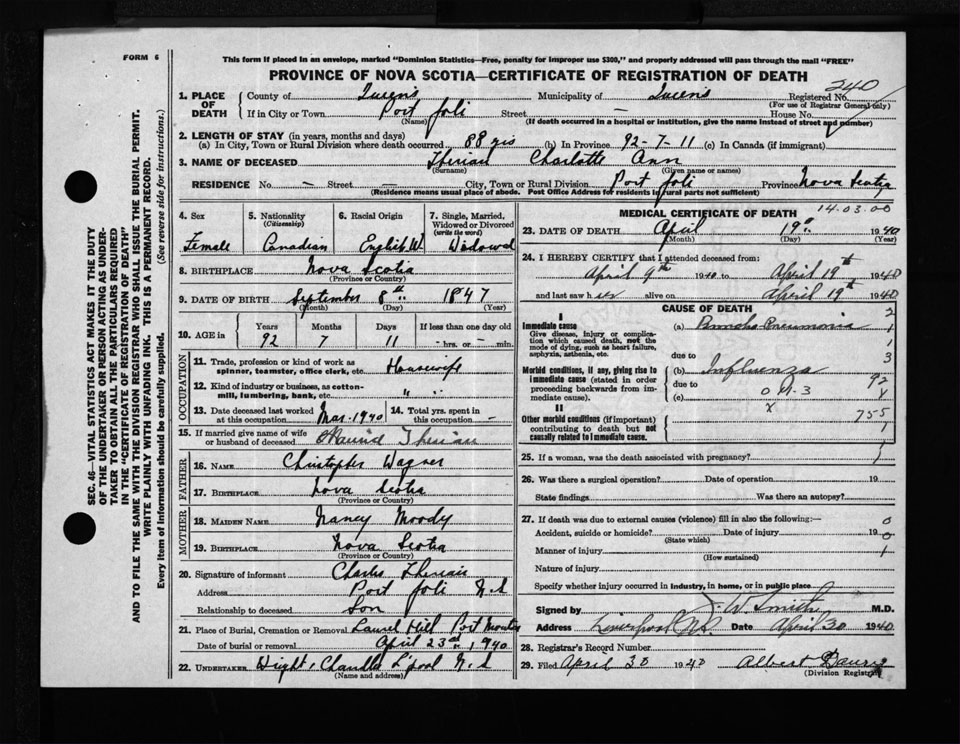 FORM 6
This form if placed in an envelope, marked "Dominion Statistics—Free, penalty for improper use $300," and properly addressed will pass through the mail "FREE"
PROVINCE OF NOVA SCOTIA—CERTIFICATE OF REGISTRATION OF DEATH
SEC. 46—VITAL STATISTICS ACT MAKES IT THE DUTY
OF THE UNDERTAKER OR PERSON ACTING AS UNDER-
TAKER TO OBTAIN ALL THE PARTICULARS REQUIRED
IN THE "CERTIFICATE OF REGISTRATION OF DEATH"
AND TO FILE THE SAME WITH THE DIVISION REGISTRAR WHO SHALL ISSUE THE BURIAL PERMIT.
WRITE PLAINLY WITH UNFADING INK. THIS IS A PERMANENT RECORD.
Every item of information should be carefully supplied. (See reverse side for instructions.)
1. PLACE OF DEATH
County of Queens Municipality of Queens Registered No. 240
(For use of Registrar General only)
If in City or Town Port Joli Street — House No.
(Name) (If death occurred in a hospital or institution, give the name instead of street and number)
2. LENGTH OF STAY (in years, months and days)
(a) In City, Town or Rural Division where death occurred 88 yrs (b) In Province 92-7-11 (c) In Canada (if immigrant)
3. NAME OF DECEASED Therian Charlotte Ann
(Surname) (Given name or names)
RESIDENCE No. — Street — City, Town or Rural Division Port Joli Province Nova Scotia
(Residence means usual place of abode. Post Office Address for residents in rural parts not sufficient)
4. Sex
Female
5. Nationality
(Citizenship)
Canadian
6. Racial Origin
English W.
7. Single, Married, Widowed or Divorced
(write the word)
Widowed
8. BIRTHPLACE Nova Scotia
(Province or Country)
9. DATE OF BIRTH September 8th 1847
(Month) (Day) (Year)
10. AGE in
Years Months Days If less than one day old
92 7 11 — hrs. or — min.
OCCUPATION
11. Trade, profession or kind of work as
spinner, teamster, office clerk, etc. Housewife
12. Kind of industry or business, as cotton-
mill, lumbering, bank, etc. " "
13. Date deceased last worked at this occupation Mar. 1940
14. Total yrs. spent in this occupation —
15. If married give name of wife or husband of deceased Therian
FATHER
16. NAME Christopher Wagner
17. BIRTHPLACE Nova Scotia
(Province or Country)
MOTHER
18. MAIDEN NAME Nancy Moody
19. BIRTHPLACE Nova Scotia
(Province or Country)
20. Signature of informant Charles Therian
Address Port Joli N.S
Relationship to deceased Son
21. Place of Burial, Cremation or Removal Laurel Hill Port Mouton
Date of burial or removal April 23rd, 1940
22. UNDERTAKER Chandler L'pool N.S
(Name and address)
MEDICAL CERTIFICATE OF DEATH 14.03.00
23. DATE OF DEATH April 19th 1940
(Month) (Day) (Year)
24. I HEREBY CERTIFY that I attended deceased from:
April 9th 1940 to April 19th 1940
and last saw her alive on April 19th 1940
CAUSE OF DEATH
I
Immediate cause
Give disease, injury or complica-
tion which caused death, not the
mode of dying, such as heart failure,
asphyxia, asthenia, etc.
(a) Broncho Pneumonia
due to
Morbid conditions, if any, giving rise to
immediate cause (stated in order
proceeding backwards from im-
mediate cause).
(b) Influenza
due to
(c)
II
Other morbid conditions (if important)
contributing to death but not
causally related to immediate cause.
2
1
1
3
92
755
1
1
25. If a woman, was the death associated with pregnancy? 1
26. Was there a surgical operation? Date of operation 19
State findings Was there an autopsy?
27. If death was due to external causes (violence) fill in also the following:— 0
Accident, suicide or homicide? Date of injury 19 0
(State which)
Manner of injury 1
(How sustained)
Nature of injury
Specify whether injury occurred in industry, in home, or in public place
Signed by J. W. Smith M.D.
Address Liverpool N.S. Date April 30 1940
28. Registrar's Record Number
29. Filed April 30 1940 Albert
(Division Registrar)